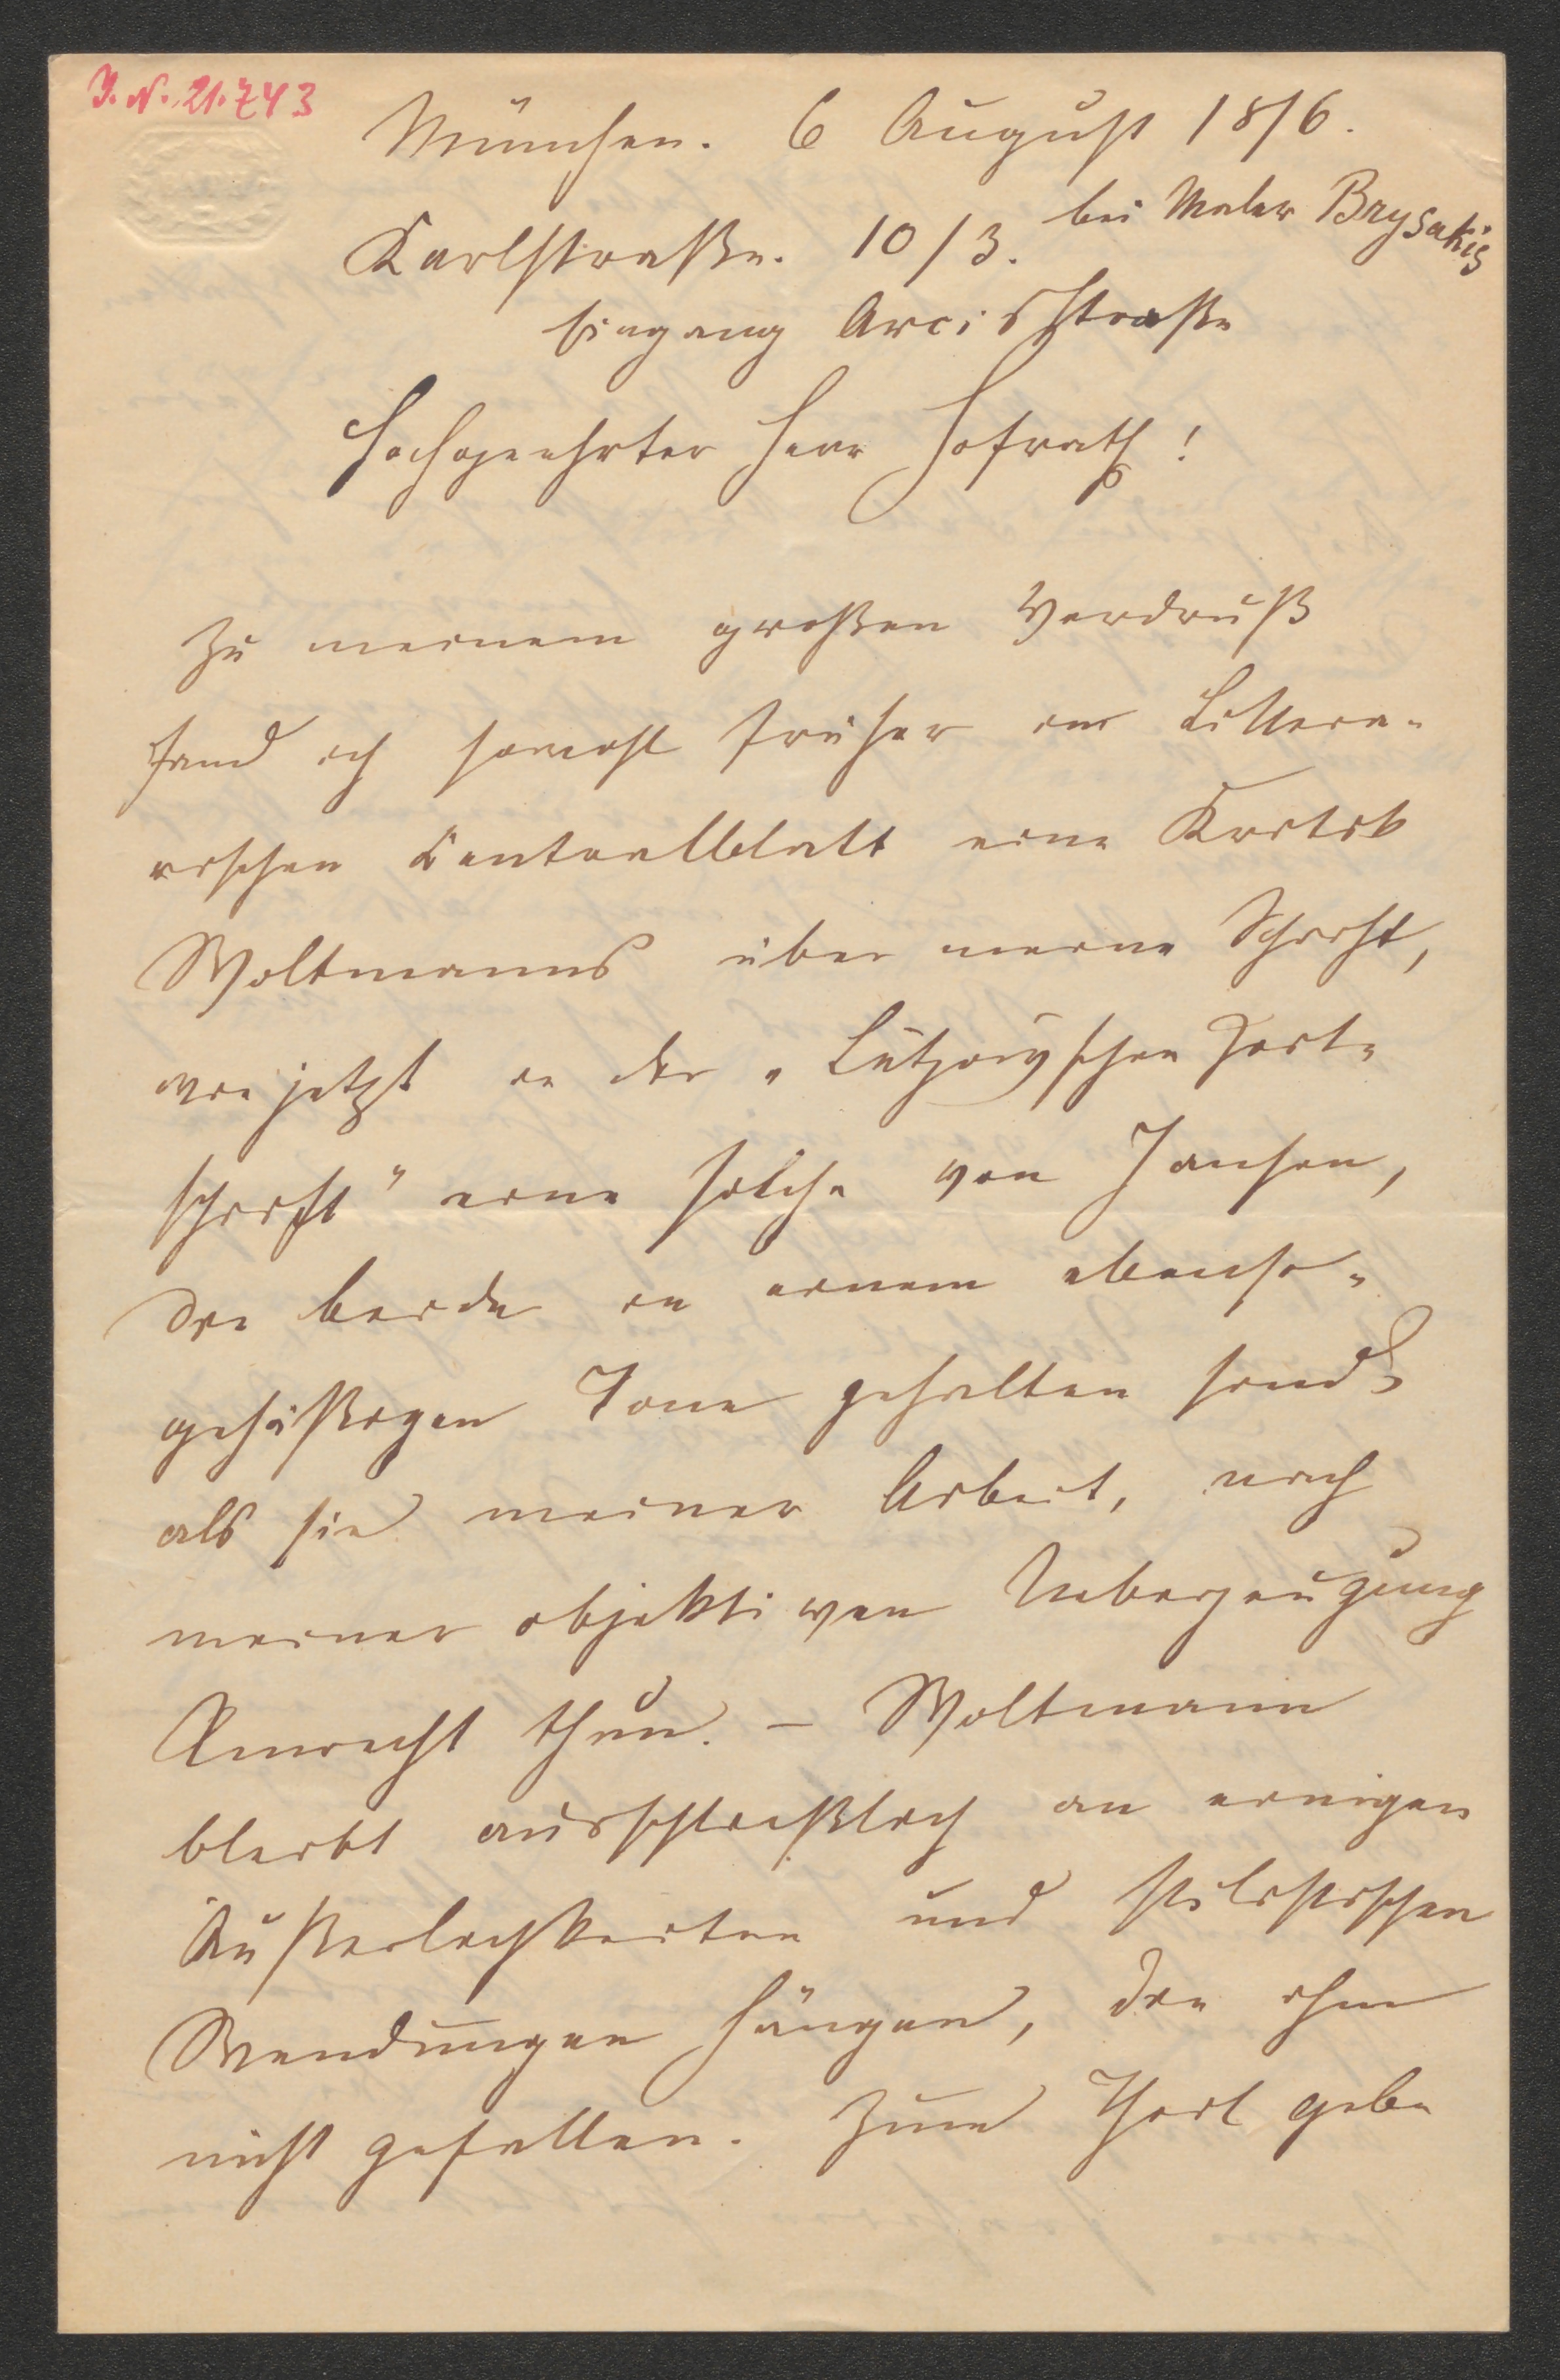 J. N. 21.743
München. 6 August 1876.
Karlstraße. 10/3. bei Maler Brysakis
Eingang Arcisstraße
Hochgeehrter Herr Hofrath!
Zu meinem großen Verdruß
fand ich sowohl früher im Littera-
rischen Centralblatt eine Kritik
Woltmanns über meine Schrift,
wie jetzt in der „Lützowschen Zeit-
schrift" eine solche von Jansen,
die beide in einem ebenso-
gehäßigen Tone gehalten sind
als sie meiner Arbeit, nach
meiner objektiven Ueberzeugung
Unrecht thun. – Woltmann
bleibt ausschließlich an einigen
Äußerlichkeiten und stilistischen
Wendungen hängen, die ihm
nicht gefallen. Zum Theil gebe